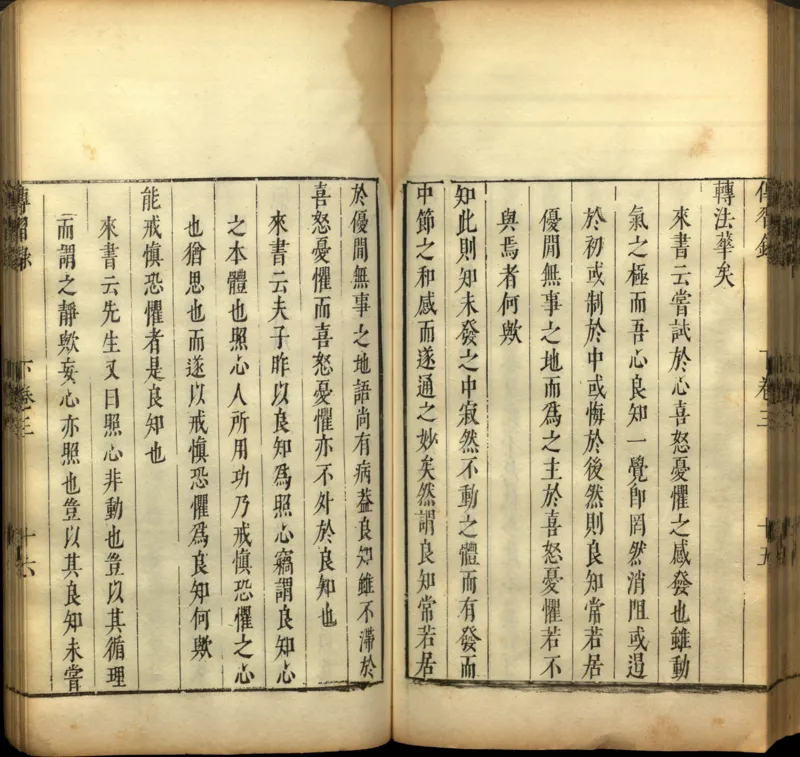 傳習錄 下卷三 十五
轉法華矣
來書云嘗試於心喜怒憂懼之感發也雖動
氣之極而吾心良知一覺卽罔然消阻或遏
於初或制於中或悔於後然則良知常若居
優閒無事之地而爲之主於喜怒憂懼若不
與焉者何歟
知此則知未發之中寂然不動之體而有發而
中節之和感而遂通之妙矣然謂良知常若居
於優閒無事之地語尚有病蓋良知雖不滯於
喜怒憂懼而喜怒憂懼亦不外於良知也
來書云夫子昨以良知爲照心竊謂良知心
之本體也照心人所用功乃戒慎恐懼之心
也猶思也而遂以戒慎恐懼爲良知何歟
能戒慎恐懼者是良知也
來書云先生又曰照心非動也豈以其循理
而謂之靜歟妄心亦照也豈以其良知未嘗
傳習錄 下卷三 十六